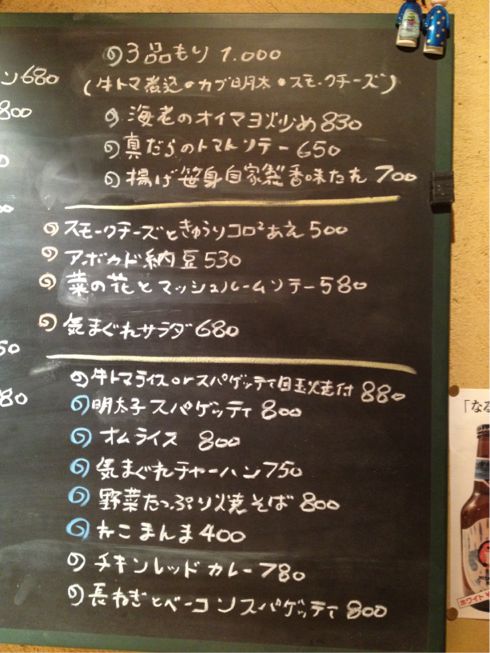 ３品もり 1.000
(牛トマ煮込・カブ明太・スモークチーズ)
海老のオイマヨ炒め 830
真だらのトマトソテー 650
揚げ笹身自家製香味たれ 700
スモークチーズときゅうりコロコロあえ 500
アボカド納豆 530
菜の花とマッシュルームソテー 580
気まぐれサラダ 680
牛トマライスorスパゲッティ目玉焼付 880
明太子スパゲッティ 800
オムライス 800
気まぐれチャーハン 750
野菜たっぷり焼そば 800
ねこまんま 400
チキンレッドカレー 780
長ねぎとベーコンスパゲッティ 800
ン 680
800
50
80
「なな
ホワイト